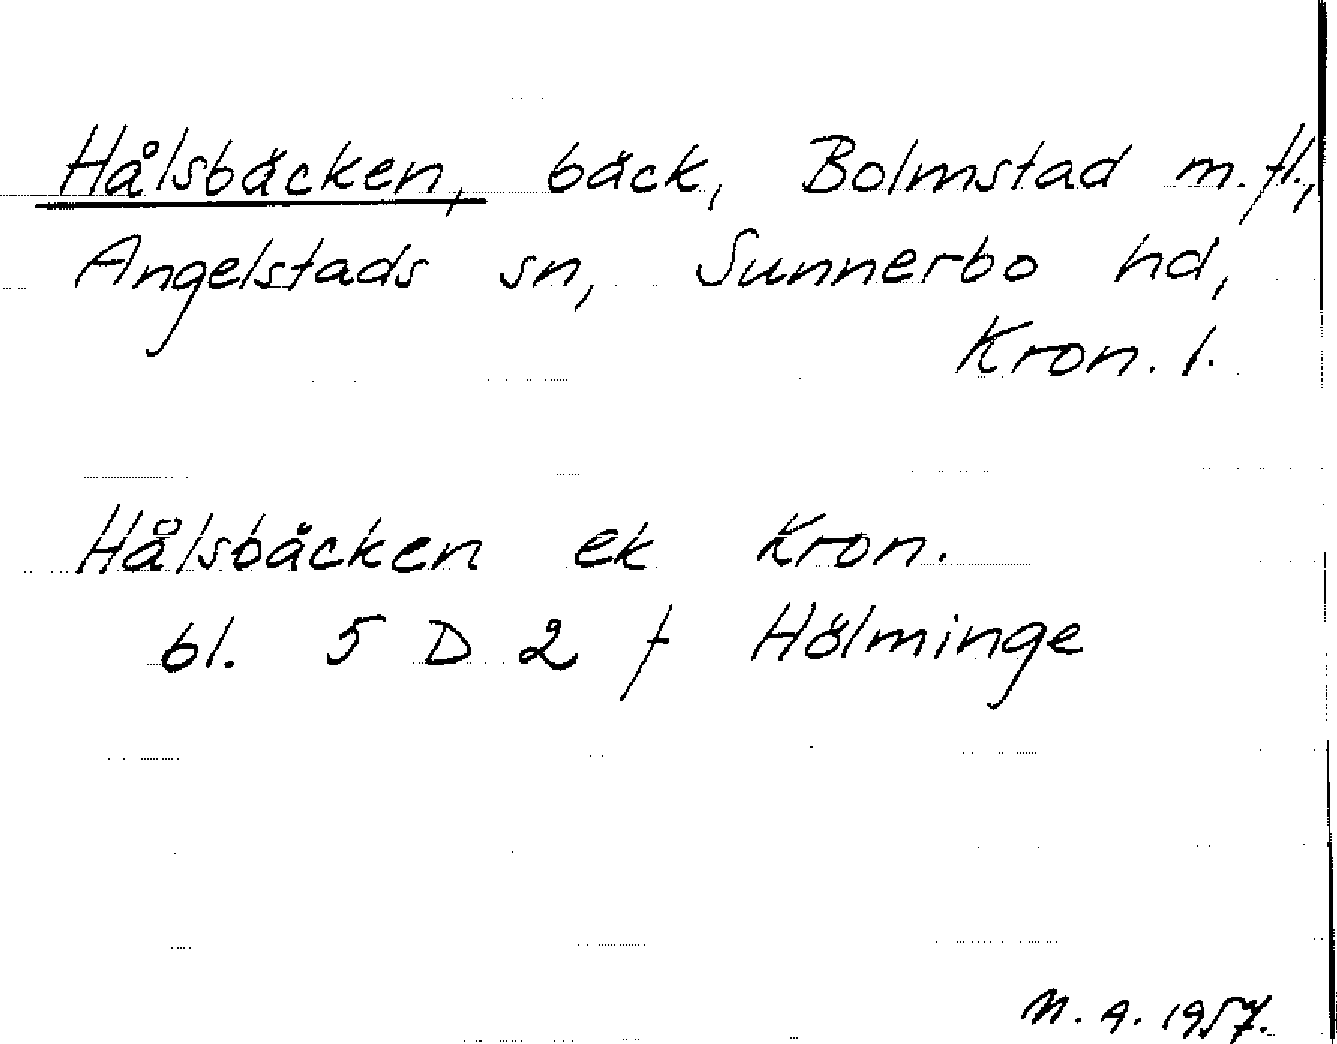 Hålsbäcken, bäck, Bolmstad m.fl.,
Angelstads sn, Sunnerbo hd,
Kron. l.
Hålsbäcken ek Kron.
bl. 5 D 2 f Hölminge
N. A. 1957.